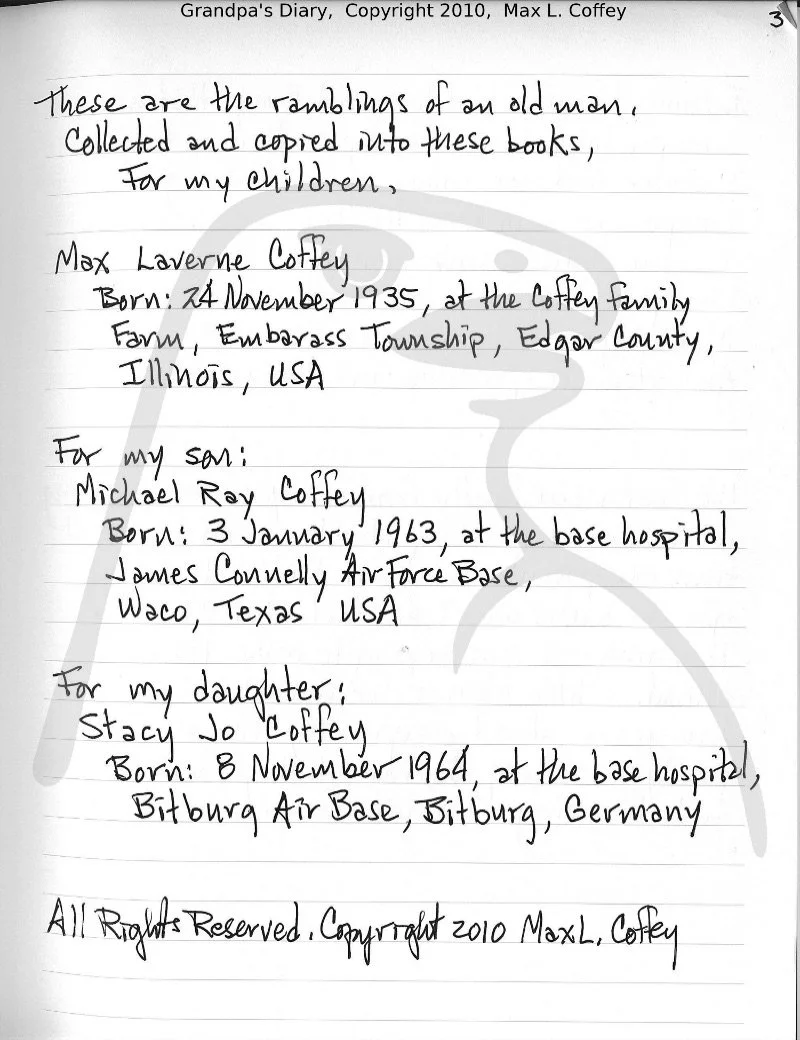 Grandpa's Diary, Copyright 2010, Max L. Coffey
3
These are the ramblings of an old man.
Collected and copied into these books,
For my children,
Max Laverne Coffey
Born: 24 November 1935, at the Coffey family
Farm, Embarass Township, Edgar County,
Illinois, USA
For my son:
Michael Ray Coffey
Born: 3 January 1963, at the base hospital,
James Connelly Air Force Base,
Waco, Texas USA
For my daughter:
Stacy Jo Coffey
Born: 8 November 1964, at the base hospital,
Bitburg Air Base, Bitburg, Germany
All Rights Reserved. Copyright 2010 Max L. Coffey